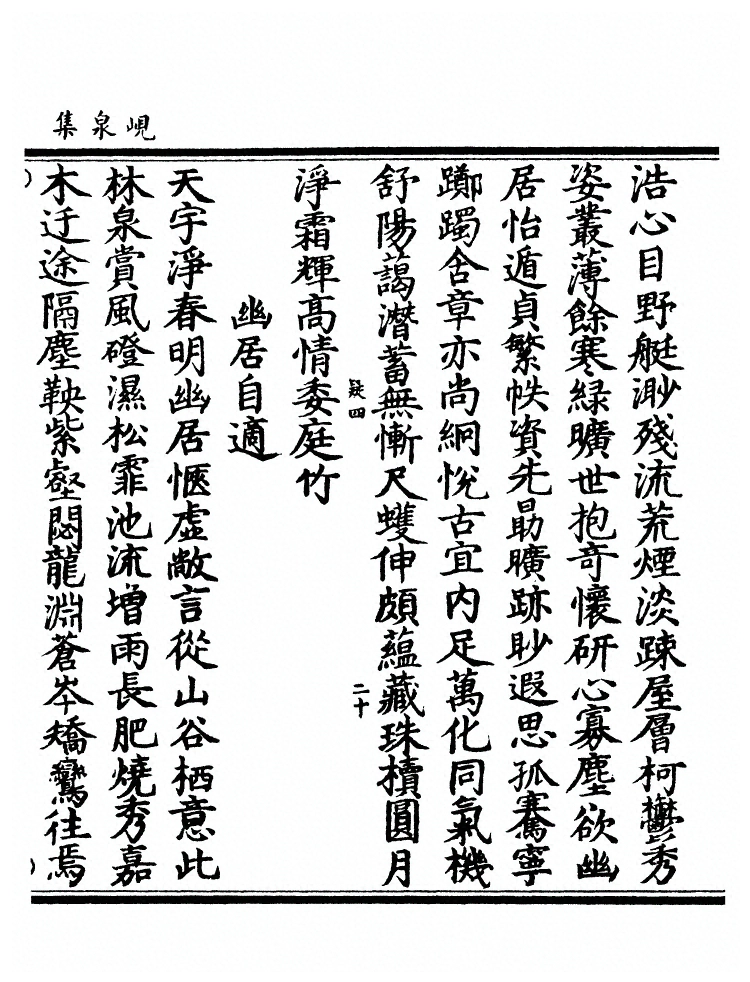 峴泉集
浩心目野艇渺殘流荒煙淡踈屋層柯鬱秀
姿叢薄餘寒綠曠世抱奇懷研心寡塵欲幽
居怡遁貞繁帙資先勗曠跡眇遐思孤騫寧
躑躅含章亦尚絅悅古宜内足萬化同氣機
舒陽藹潛蓄無慚尺蠖伸頗蘊藏珠櫝圓月
淨霜輝高情委庭竹
幽居自適
天宇淨春明幽居愜虛敞言從山谷栖意此
林泉賞風磴濕松霏池流增雨長肥燒秀嘉
木迂途隔塵鞅紫壑閟龍淵蒼岑矯鸞往焉
疑四
二十